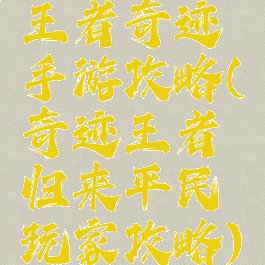 王者奇迹
手游攻略(
奇迹王者
归来平民
玩家攻略)